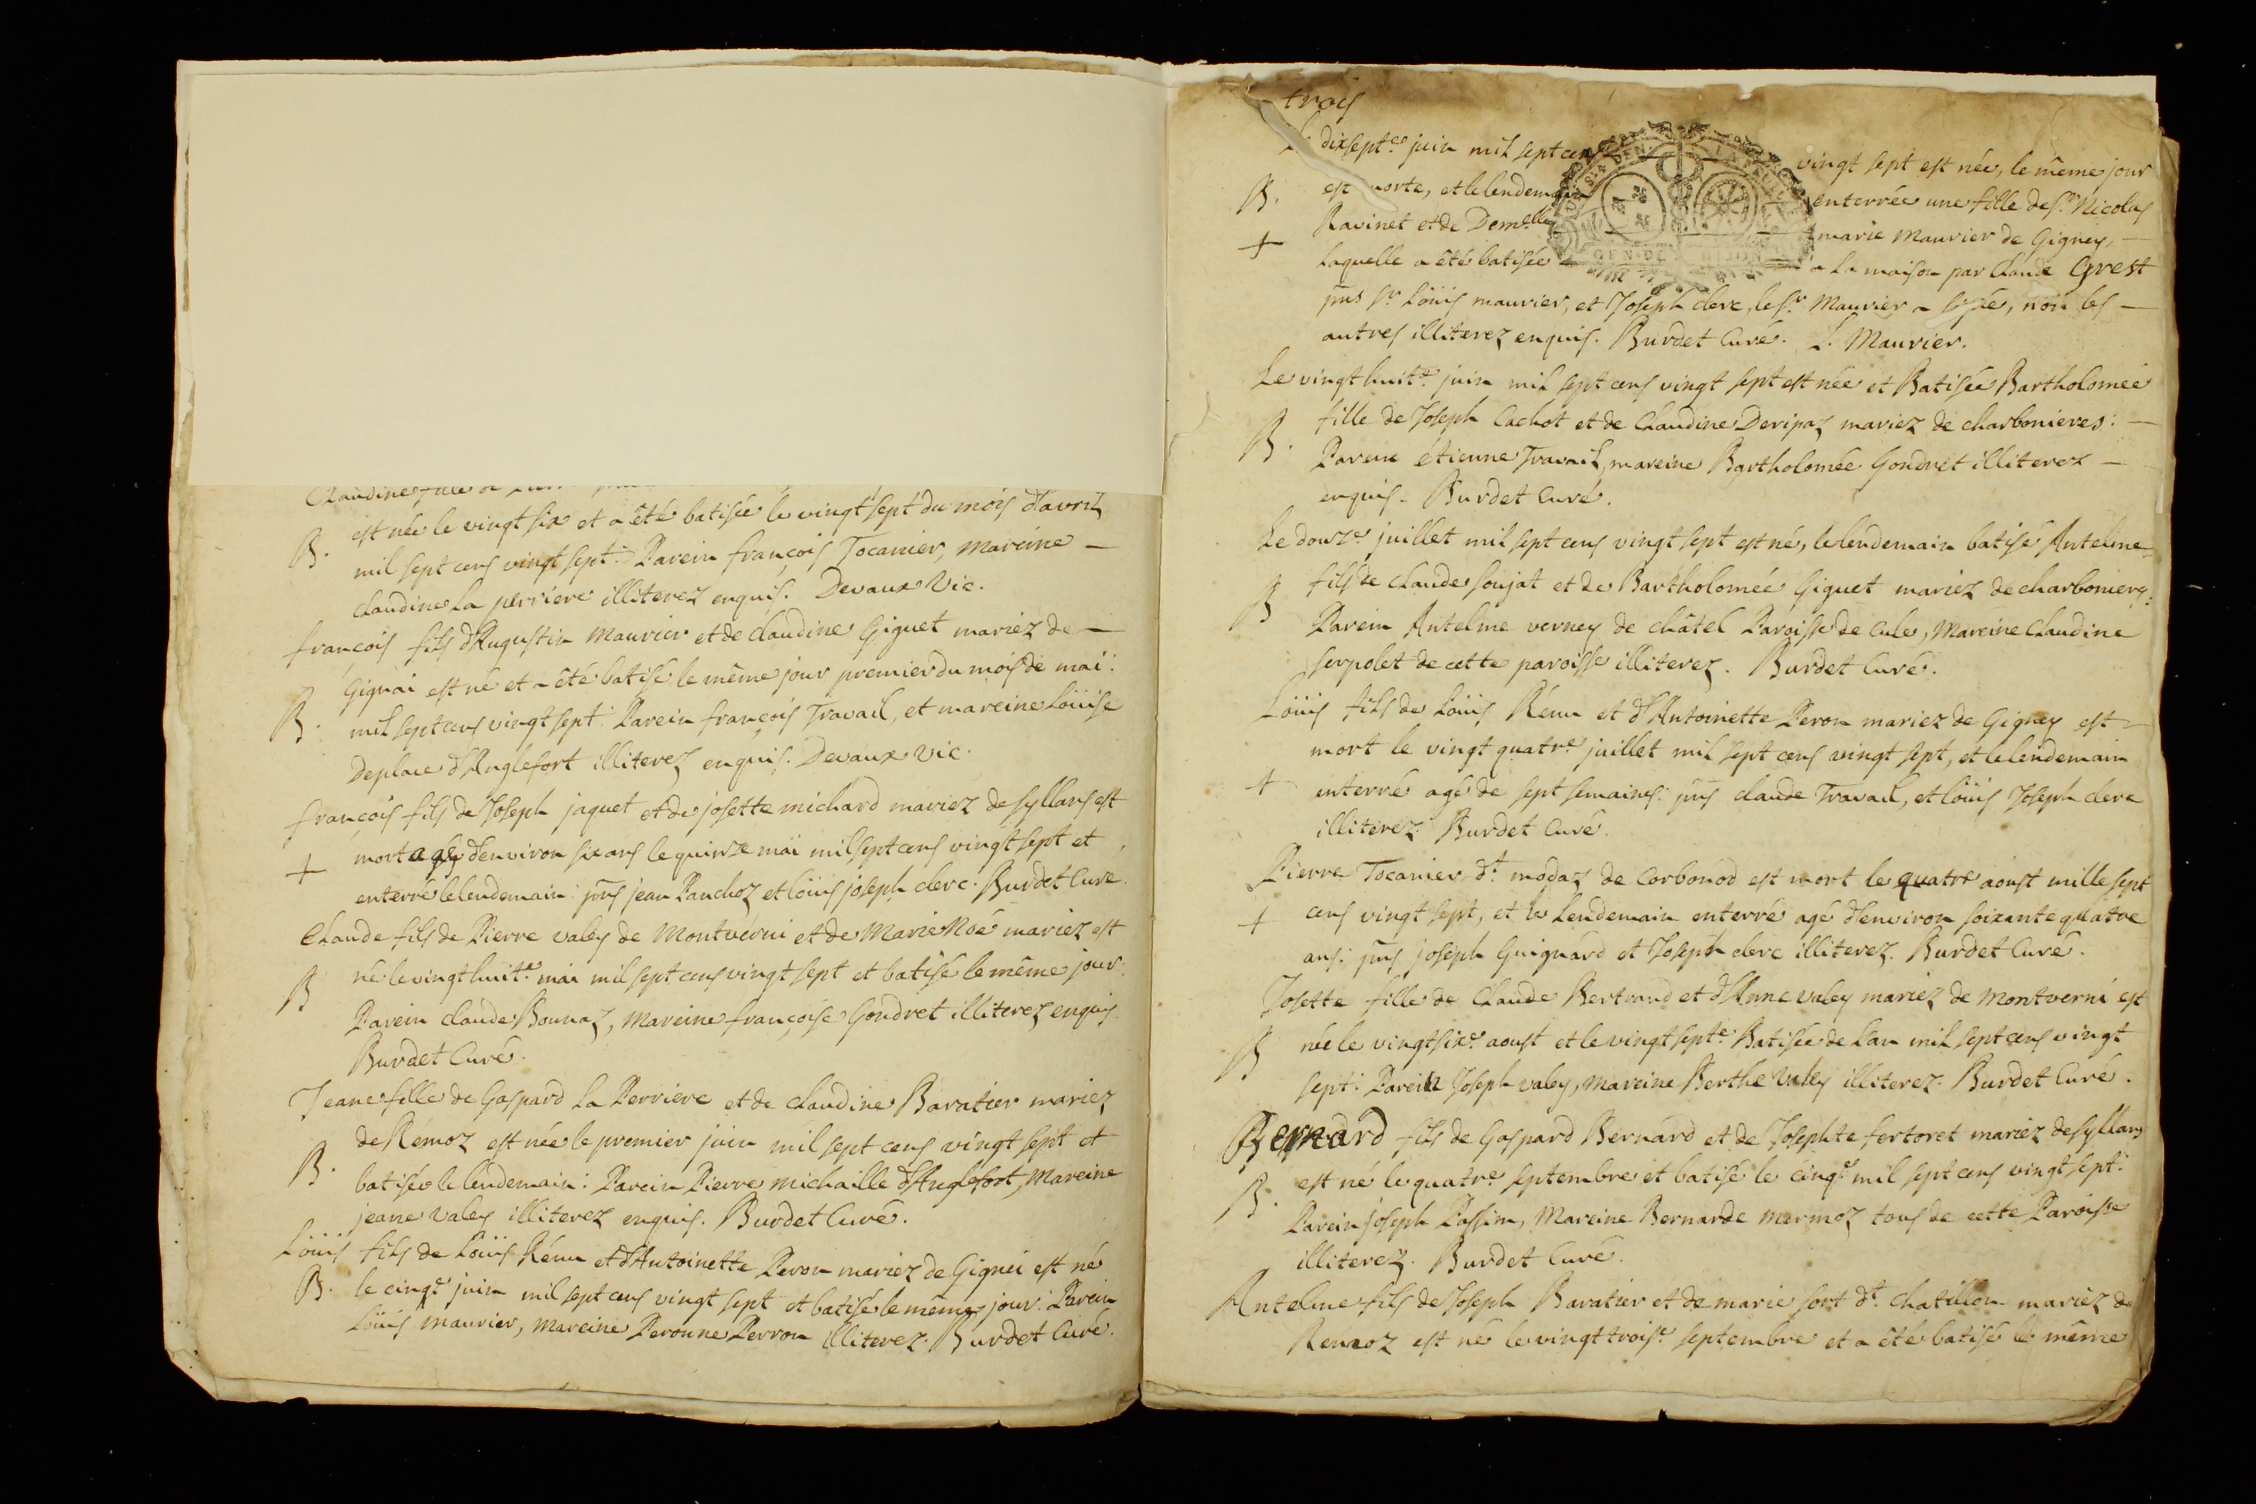 Claudine fille de
B. est née le vingt six et a êté batisée le vingt sept du mois d'avril
mil sept cens vingt sept: Parein françois Tocanier, Mareine —
claudine La perriere illiterez enquis. Devaux Vic.
françois fils d'Augustin Maurier et de claudine Giguet mariez de —
Gignai est né et a êté batisé le même jour premier du mois de mai:
B. mil sept cens vingt sept: Parein françois Travail, et mareine Loüise
Deplace d'Anglefort illiterez enquis. Devaux Vic.
françois fils de Joseph jaquet et de josette michard mariez de syllans est
+ mort agé d'environ six ans le quinze mai mil sept cens vingt sept et
enterré le lendemain: pns jean Panchoz et loüis joseph clerc. Burdet Curé.
Claude fils de Pierre valey de Montverni et de Marie Noé mariez est
B né le vingt huit.e mai mil sept cens vingt sept et batisé le même jour.
Parein claude Bonnaz, Mareine françoise Gondret illiterez enquis.
Burdet Curé.
Jeane fille de Gaspard La Perriere et de claudine Baratier mariez
de Rémoz est née le premier juin mil sept cens vingt sept et
B. batisée le lendemain: Parein Pierre michaille d'Anglefort, Mareine
jeane valey illiterez enquis. Burdet Curé.
Loüis fils de Loüis Rému et d'Antoinette Peron mariez de Gignei est né
B. le cinq.e juin mil sept cens vingt sept et batisé le même jour: Parein
Loüis maurier, mareine Peronne Perron illiterez. Burdet Curé.
trois
Le dixsept.e juin mil sept cens vingt sept est née, le même jour
B. est morte, et le lendemain enterrée une fille de s.r Nicolas
Ravinet et de Dem.elle marie Maurier de Gigney, —
+ Laquelle a êté batisée a la maison par claude Grest
pns s.r Loüis maurier, et Joseph clerc, le s.r Maurier a signé, non les —
autres illiterez enquis. Burdet Curé. L. Maurier.
Le vingt huit.e juin mil sept cens vingt sept est née et Batisée Bartholomée
fille de Joseph Cachot et de Claudine Deripaz mariez de charbonieres: —
B. Parein étienne Travail, mareine Bartholomée Gondret illiterez —
enquis. Burdet Curé.
Le douz.e juillet mil sept cens vingt sept est né, le lendemain batisé Antelme
B fils de claude soujat et de Bartholomée Giguet mariez de charbonieres:
Parein Antelme verney de châtel Paroisse de Cule, Mareine claudine
serpolet de cette paroisse illiterez. Burdet Curé.
Loüis fils de Loüis Rému et d'Antoinette Peron mariez de Gigney est
mort le vingt quatr.e juillet mil sept cens vingt sept, et le lendemain
+ enterré agé de sept semaines: pns claude Travail, et loüis Joseph clerc
illiterez. Burdet Curé.
Pierre Tocanier d.t modaz de Corbonod est mort le quatre aoust mille sept
+ cens vingt sept, et le Lendemain enterré agé d'environ soixante quatre
ans: pns joseph Guignard et Joseph clerc illiterez. Burdet Curé.
Josette fille de Claude Bertrand et d'Anne valey mariez de Montverni est
B née le vingt six.e aoust et le vingt sept.e Batisée de l'an mil sept cens vingt
sept: Parein Joseph valey, Mareine Berthe Valey illiterez. Burdet Curé.
Bernard fils de Gaspard Bernard et de Josephte fertoret mariez de syllans
est né le quatr.e septembre et batisé le cinq.e mil sept cens vingt sept:
B. Parein joseph Passin, Mareine Bernarde mermoz tous de cette Paroisse
illiterez. Burdet Curé.
Antelme fils de Joseph Baratier et de marie fort d.t chatillon mariez de
Remoz est né le vingt trois.e septembre et a êté batisé le même